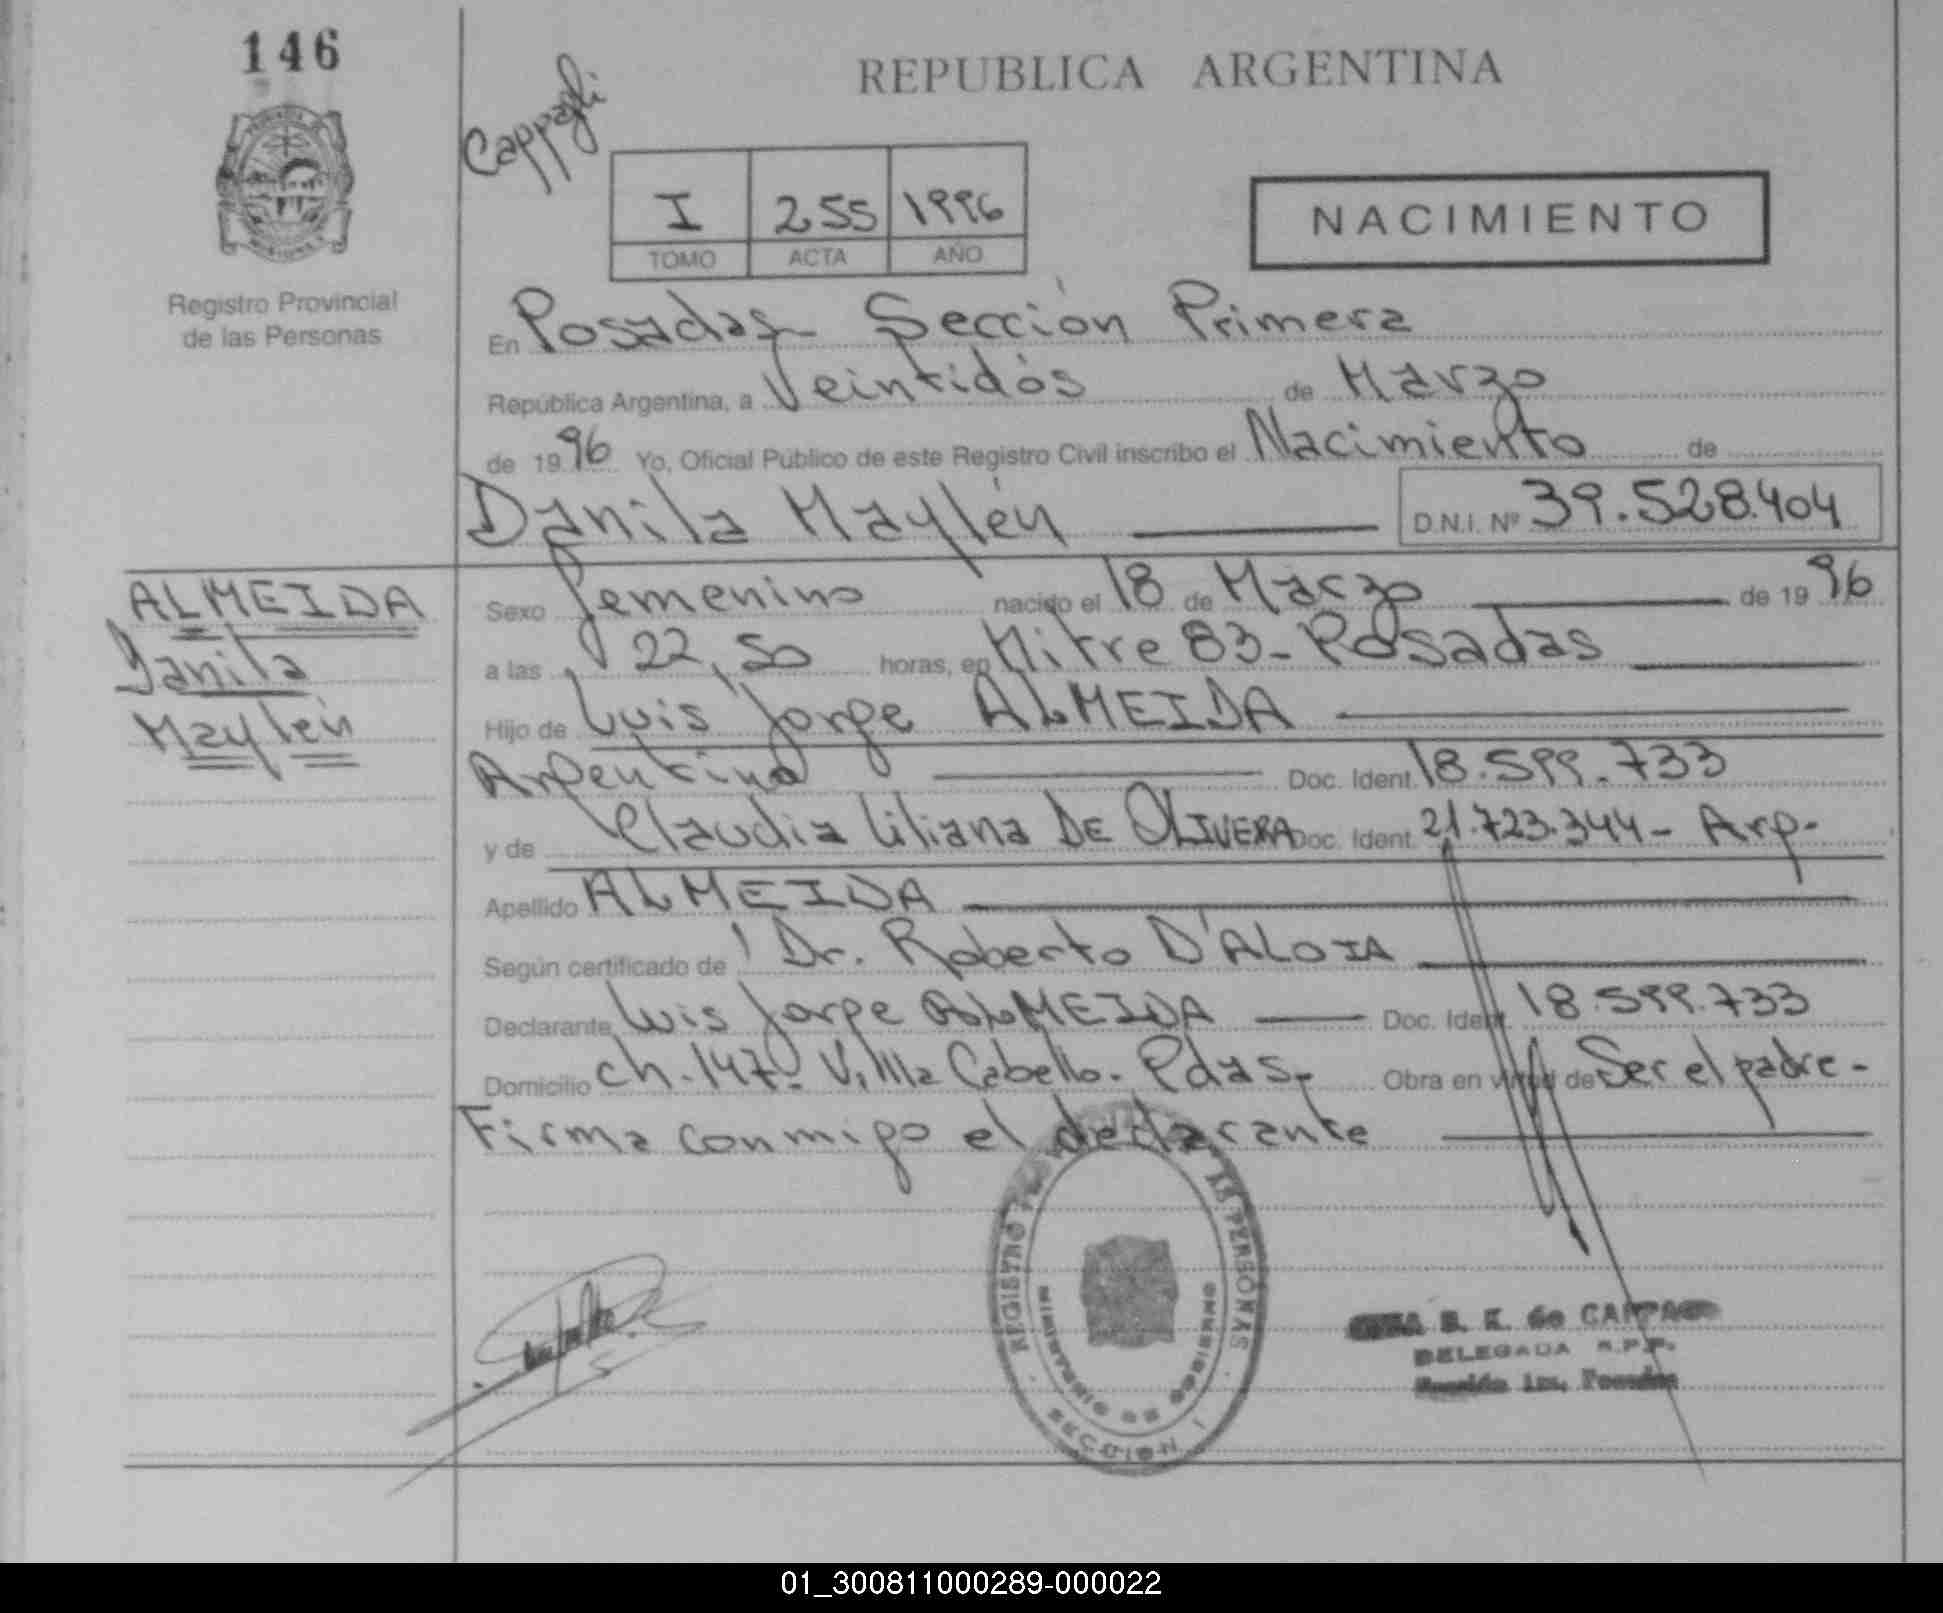 146
REPUBLICA ARGENTINA
Cappagli
I 255 1996
TOMO ACTA AÑO
NACIMIENTO
Registro Provincial
de las Personas
En Posadas - Sección Primera
República Argentina, a Veintidós de Marzo
de 1996 Yo, Oficial Público de este Registro Civil inscribo el Nacimiento de
Danila Maylén D.N.I. Nº 39.528.404
ALMEIDA
Danila
Maylén
Sexo femenino nacido el 18 de Marzo de 1996
a las 22,50 horas, en Mitre 83 - Posadas
Hijo de Luis Jorge ALMEIDA
Argentino Doc. Ident. 18.599.733
y de Claudia Liliana DE OLIVERA Doc. Ident. 21.723.344 - Arg.
Apellido ALMEIDA
Según certificado de Dr. Roberto D'ALOIA
Declarante Luis Jorge ALMEIDA Doc. Ident. 18.599.733
Domicilio ch. 147 - Villa Cabello - Pdas. Obra en virtud de Ser el padre -
Firma conmigo el declarante
REGISTRO LAS PERSONAS
MINISTERIO DE GOBIERNO
SECCION I
B. E. de
DELEGADA R.P.P.
Sección 1ra. Posadas
01_300811000289-000022